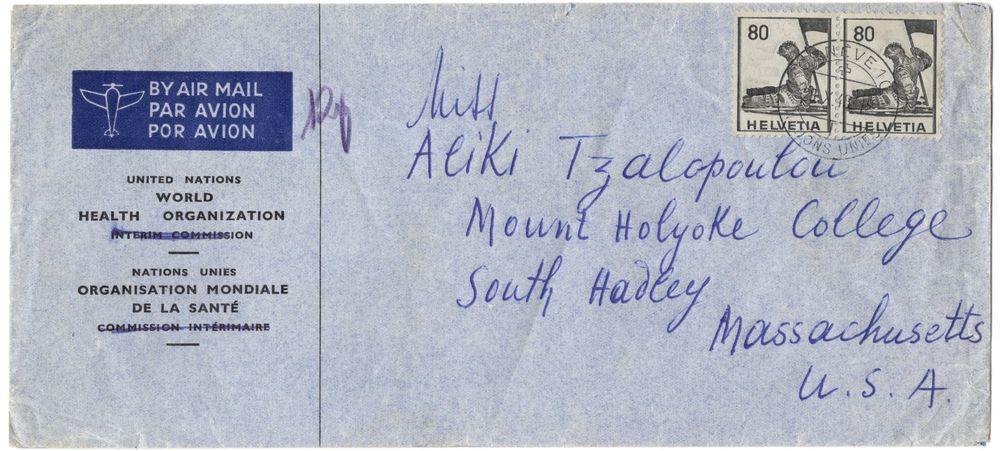 BY AIR MAIL
PAR AVION
POR AVION
UNITED NATIONS
WORLD
HEALTH ORGANIZATION
INTERIM COMMISSION
NATIONS UNIES
ORGANISATION MONDIALE
DE LA SANTÉ
COMMISSION INTÉRIMAIRE
80
HELVETIA
80
HELVETIA
Miss
Aliki Tzalopoulou
Mount Holyoke College
South Hadley
Massachusetts
U.S.A.